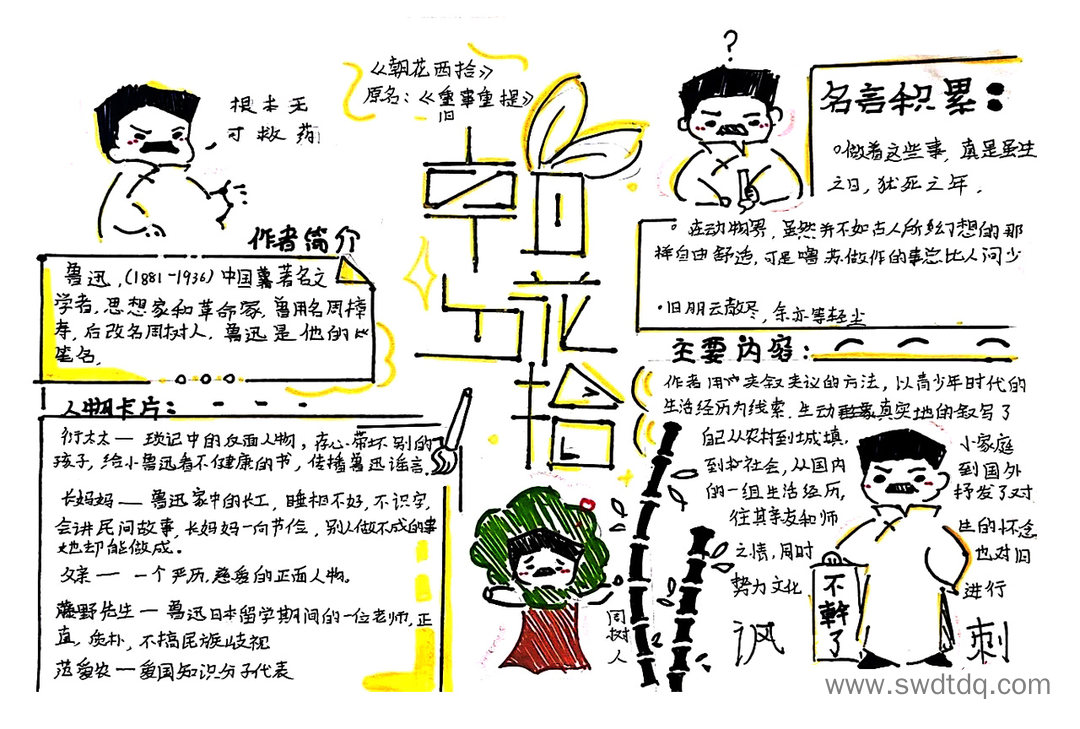 根本无
可救药
《朝花西拾》
原名：《重事重提》
旧
朝花夕拾
？
名言积累：
做着这些事，真是虽生
之日，犹死之年。
在动物界，虽然并不如古人所幻想的那
样自由舒适，可是噜苏做作的事总比人间少
·旧朋云散尽，余亦等轻尘
作者简介
鲁迅，(1881-1936)中国著名文
学者，思想家和革命家，曾用名周樟
寿，后改名周树人，鲁迅是他的
笔名。
人物卡片：
衍太太—琐记中的反面人物，存心带坏别的
孩子，给小鲁迅看不健康的书，传播鲁迅谣言。
长妈妈—鲁迅家中的长工，睡相不好，不识字，
会讲民间故事，长妈妈一向节俭，别人做不成的事
她却能做成。
父亲—一个严历，慈爱的正面人物。
藤野先生—鲁迅日本留学期间的一位老师，正
直，质朴，不搞民族歧视
范爱农—爱国知识分子代表
周树人
主要内容：
作者用夹叙夹议的方法，以青少年时代的
生活经历为线索，生动真实地的叙写了
自己从农村到城填， 小家庭
到社会，从国内 到国外
的一组生活经历， 抒发了对
往其亲友和师 生的怀念
之情，同时 也对旧
势力文化 进行
讽 刺
不幹了
www.swdtdq.com